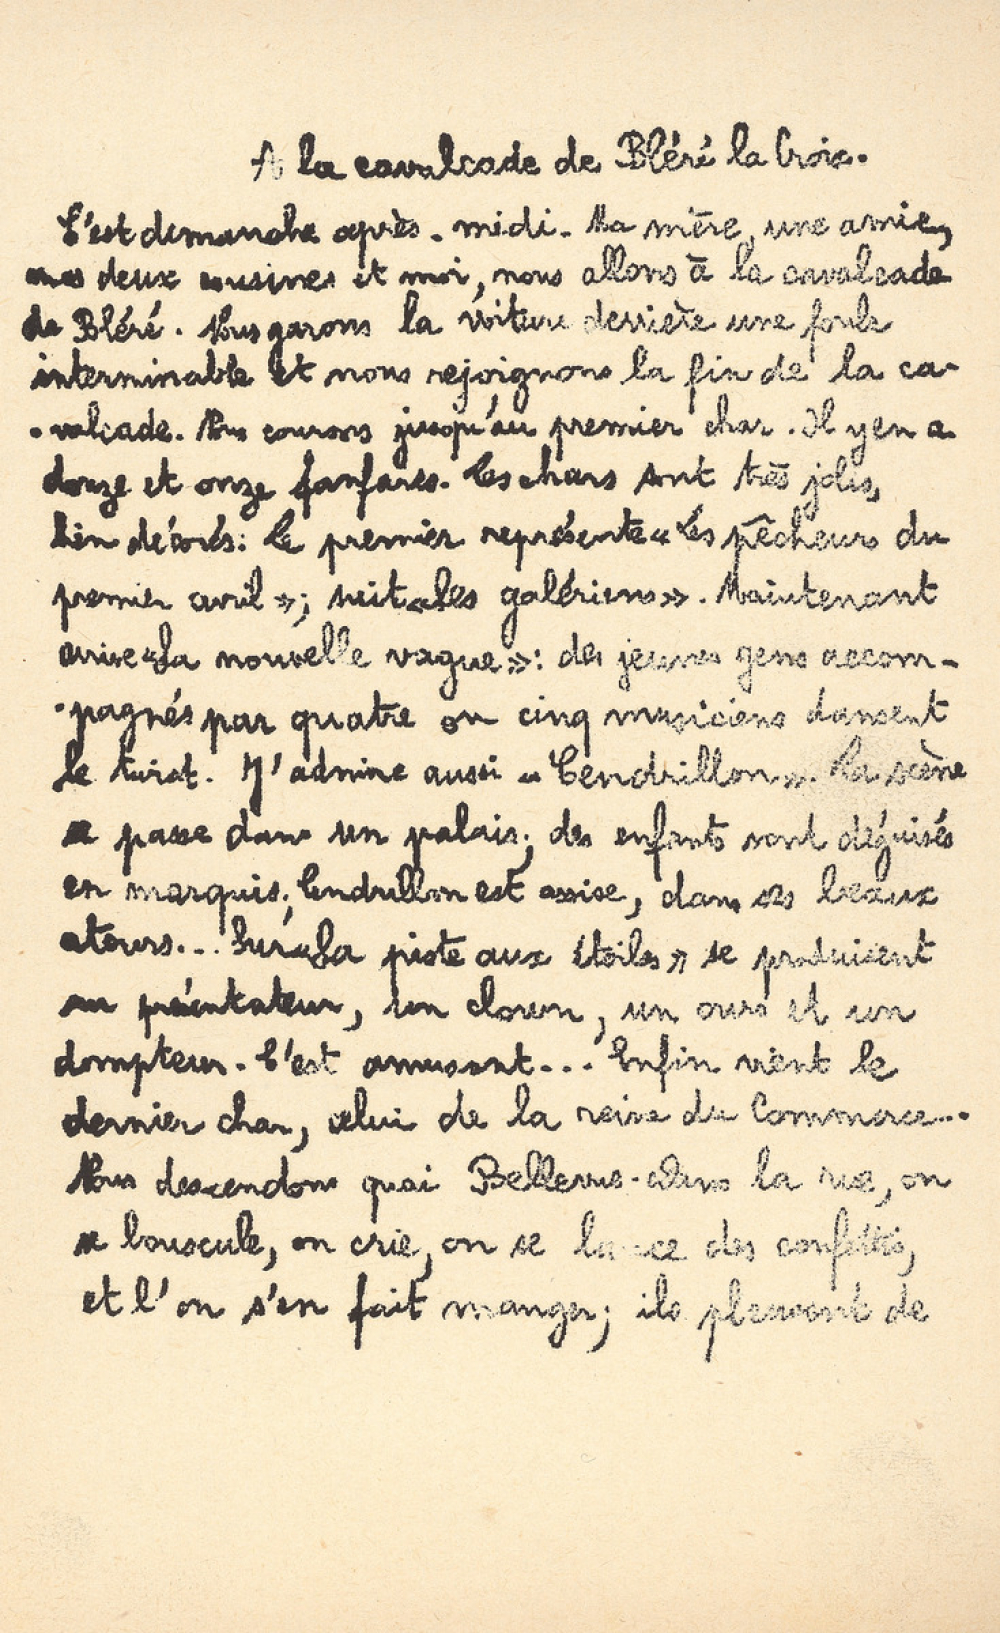 A la cavalcade de Bléré la Croix.
C'est dimanche après-midi. Ma mère, une amie,
mes deux cousines et moi, nous allons à la cavalcade
de Bléré. Nous garons la voiture derrière une foule
interminable et nous rejoignons la fin de la ca-
-valcade. Nous courons jusqu'au premier char. Il y en a
douze et onze fanfares. Les chars sont très jolis,
bien décorés: le premier représente « Les pêcheurs du
premier avril »; suit « Les galériens ». Maintenant
arrive « La nouvelle vague »: des jeunes gens accom-
-pagnés par quatre ou cinq musiciens dansent
le twist. J'admire aussi « Cendrillon ». La scène
se passe dans un palais; des enfants sont déguisés
en marquis; Cendrillon est assise, dans ses beaux
atours... Sur « La piste aux étoiles » se produisent
un présentateur, un clown, un ours et un
dompteur. C'est amusant... Enfin vient le
dernier char, celui de la reine du Commerce...
Nous descendons quai Bellevue. Dans la rue, on
se bouscule, on crie, on se lance des confettis,
et l'on s'en fait manger; ils pleuvent de